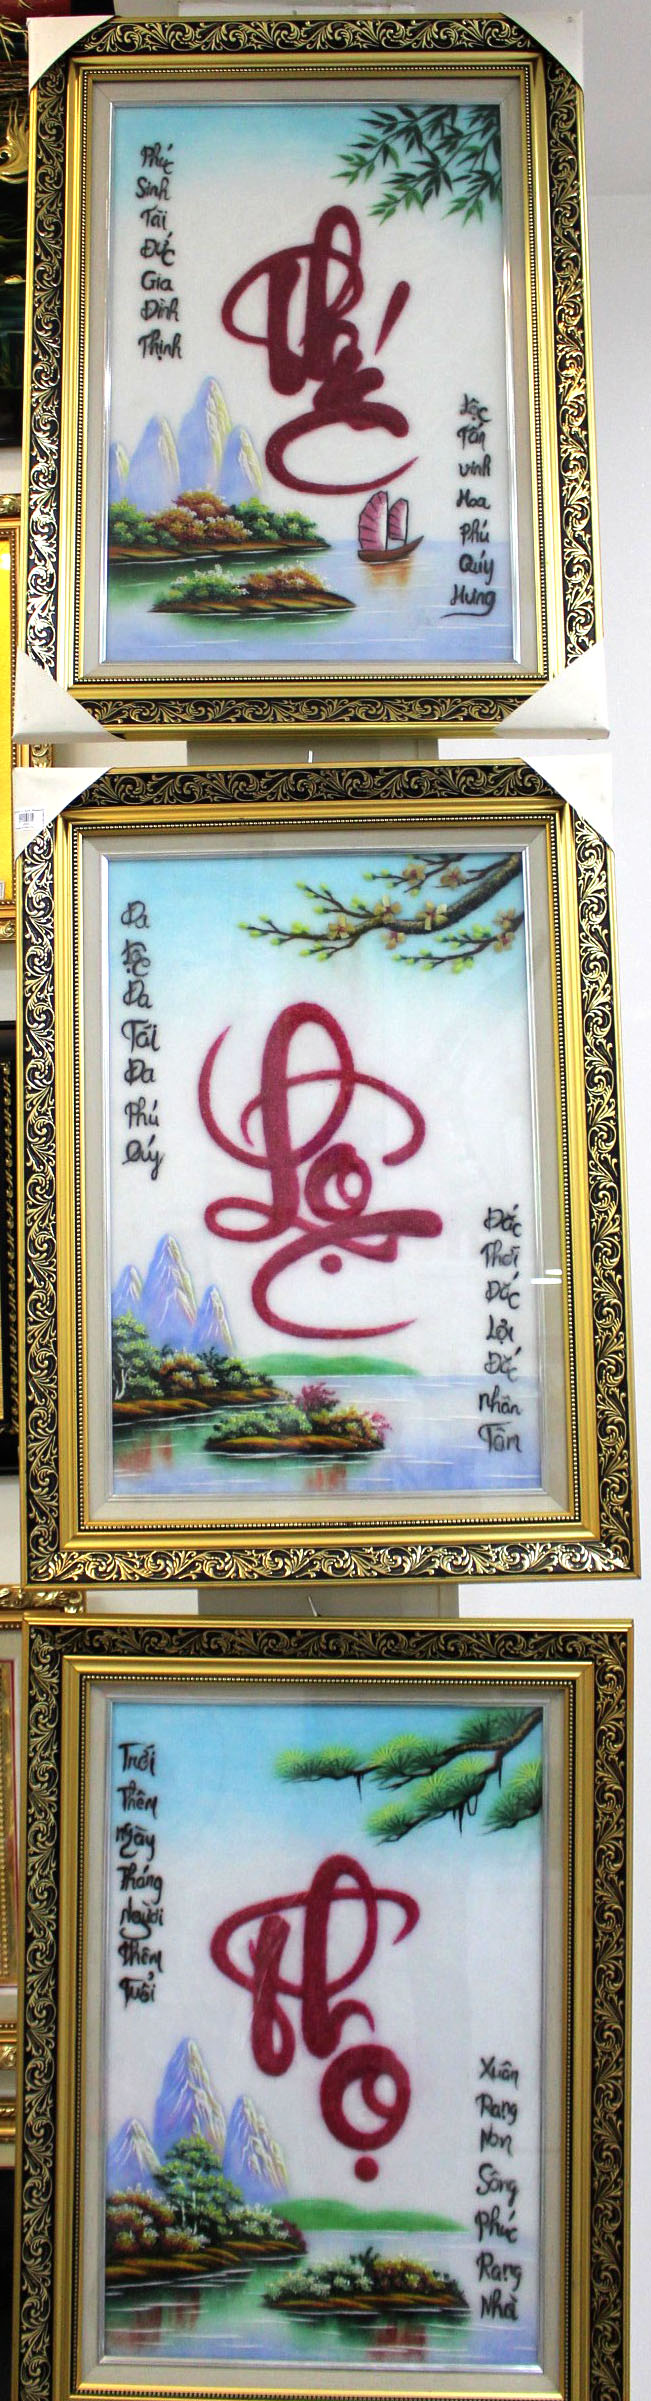 Phúc
Sinh
Tài
Đức
Gia
Đình
Thịnh
Phúc
Lộc
Tấn
Vinh
Hoa
Phú
Quý
Hưng
Đa
Lộc
Đa
Tài
Đa
Phú
Qúy
Lộc
Đắc
Thời
Đắc
Lợi
Đắc
Nhân
Tâm
Trời
Thêm
Ngày
Tháng
Người
Thêm
Tuổi
Thọ
Xuân
Rạng
Non
Sông
Phúc
Rạng
Nhà